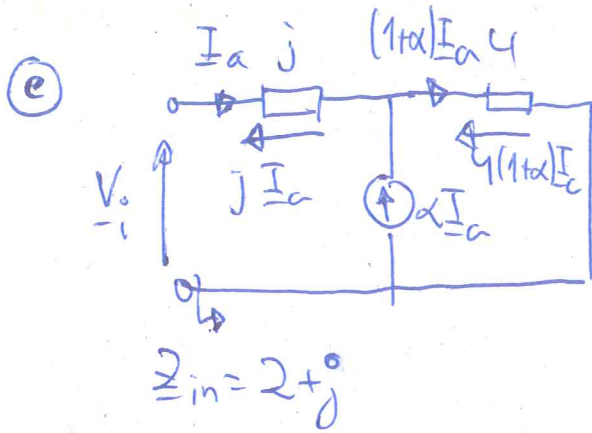 e
I̲a j (1+α)I̲a 4
j I̲a 4(1+α)I̲a
V̲i αI̲a
Z̲in = 2 + j